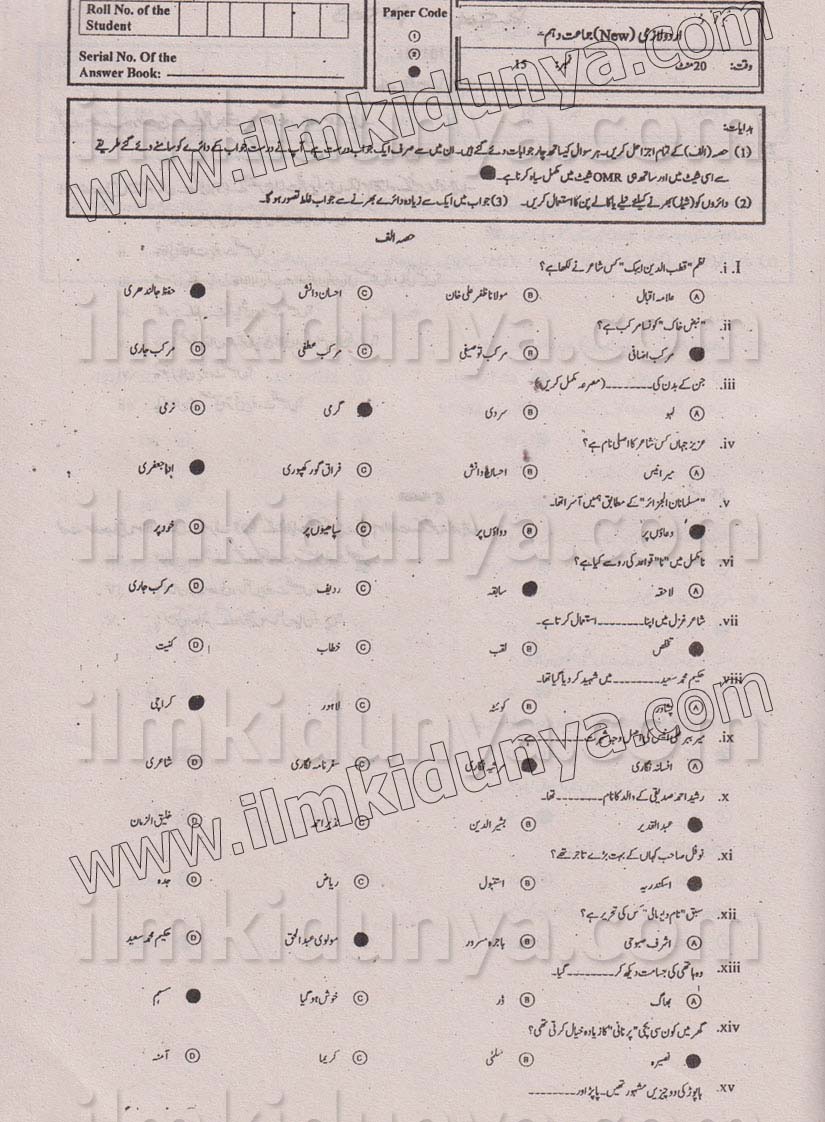 Roll No. of the
Student
Serial No. Of the
Answer Book:
Paper Code
اردو لازمی (New) جماعت دہم
وقت: 20 منٹ نمبر: 15
ہدایات:
(1) حصہ (الف) کے تمام اجزا حل کریں۔ ہر سوال کیساتھ چار جوابات دئے گئے ہیں۔ ان میں سے صرف ایک جواب درست ہے۔ آپ نے درست جواب کے دائرے کو سامنے دئے گئے طریقے
سے اسی شیٹ میں اور ساتھ ہی OMR شیٹ میں مکمل سیاہ کرنا ہے۔
(2) دائروں کو (شیڈ) بھرنے کیلئے نیلے یا کالے پن کا استعمال کریں۔ (3) جواب میں ایک سے زیادہ دائرے بھرنے سے جواب غلط تصور ہوگا۔
حصہ الف
I. i. نظم "قطب الدین ایبک" کس شاعر نے لکھا ہے؟
A علامہ اقبال B مولانا ظفر علی خان C احسان دانش حفظ جالندھری
ii. "نبض خاک" کونسا مرکب ہے؟
مرکب اضافی B مرکب توصیفی C مرکب عطفی D مرکب جاری
iii. جن کے بدن کی ۔۔۔۔۔۔۔۔ (مصرعہ مکمل کریں)
A لہو B سردی گرمی D نرمی
iv. عزیز جہاں کس شاعر کا اصلی نام ہے؟
A میر انیس B احسان دانش C فراق گورکھپوری ادا جعفری
v. "مسلمانان الجزائر" کے مطابق ہمیں آسرا تھا۔
دعاؤں پر B دواؤں پر C سپاہیوں پر D خود پر
vi. نامکمل میں "نا" قواعد کی رو سے کیا ہے؟
A لاحقہ سابقہ C ردیف D مرکب جاری
vii. شاعر غزل میں اپنا ۔۔۔۔۔۔۔۔ استعمال کرتا ہے۔
تخلص B لقب C خطاب D کنیت
viii. حکیم محمد سعید ۔۔۔۔۔۔۔۔ میں شہید کر دیا گیا تھا۔
A پشاور B کوئٹہ C لاہور کراچی
ix. میر ببر علی انیس کی اصل وجہ شہرت
A افسانہ نگاری مرثیہ نگاری C سفر نامہ نگاری D شاعری
x. رشید احمد صدیقی کے والد کا نام ۔۔۔۔۔۔۔۔ تھا۔
عبدالقدیر B بشیر الدین C نذیر احمد D خلیق الزمان
xi. نوفل صاحب کہاں کے بہت بڑے تاجر تھے؟
اسکندریہ B استنبول C ریاض D جدہ
xii. سبق "نام دیو مالی" کس کی تحریر ہے؟
A اشرف صبوحی B ہاجرہ مسرور مولوی عبدالحق D حکیم محمد سعید
xiii. وہ ہاتھی کی جسامت دیکھ کر ۔۔۔۔۔۔۔۔ گیا۔
A بھاگ B ڈر C خوش ہو گیا سہم
xiv. گھر میں کون سی بچی "پرنانی" کا زیادہ خیال کرتی تھی؟
نصیرہ B سلمٰی C کریما D آمنہ
xv. ہاپوڑ کی دو چیزیں مشہور تھیں۔ پاپڑ اور ۔۔۔۔۔۔۔۔
www.ilmkidunya.com
ilmkidunya.com